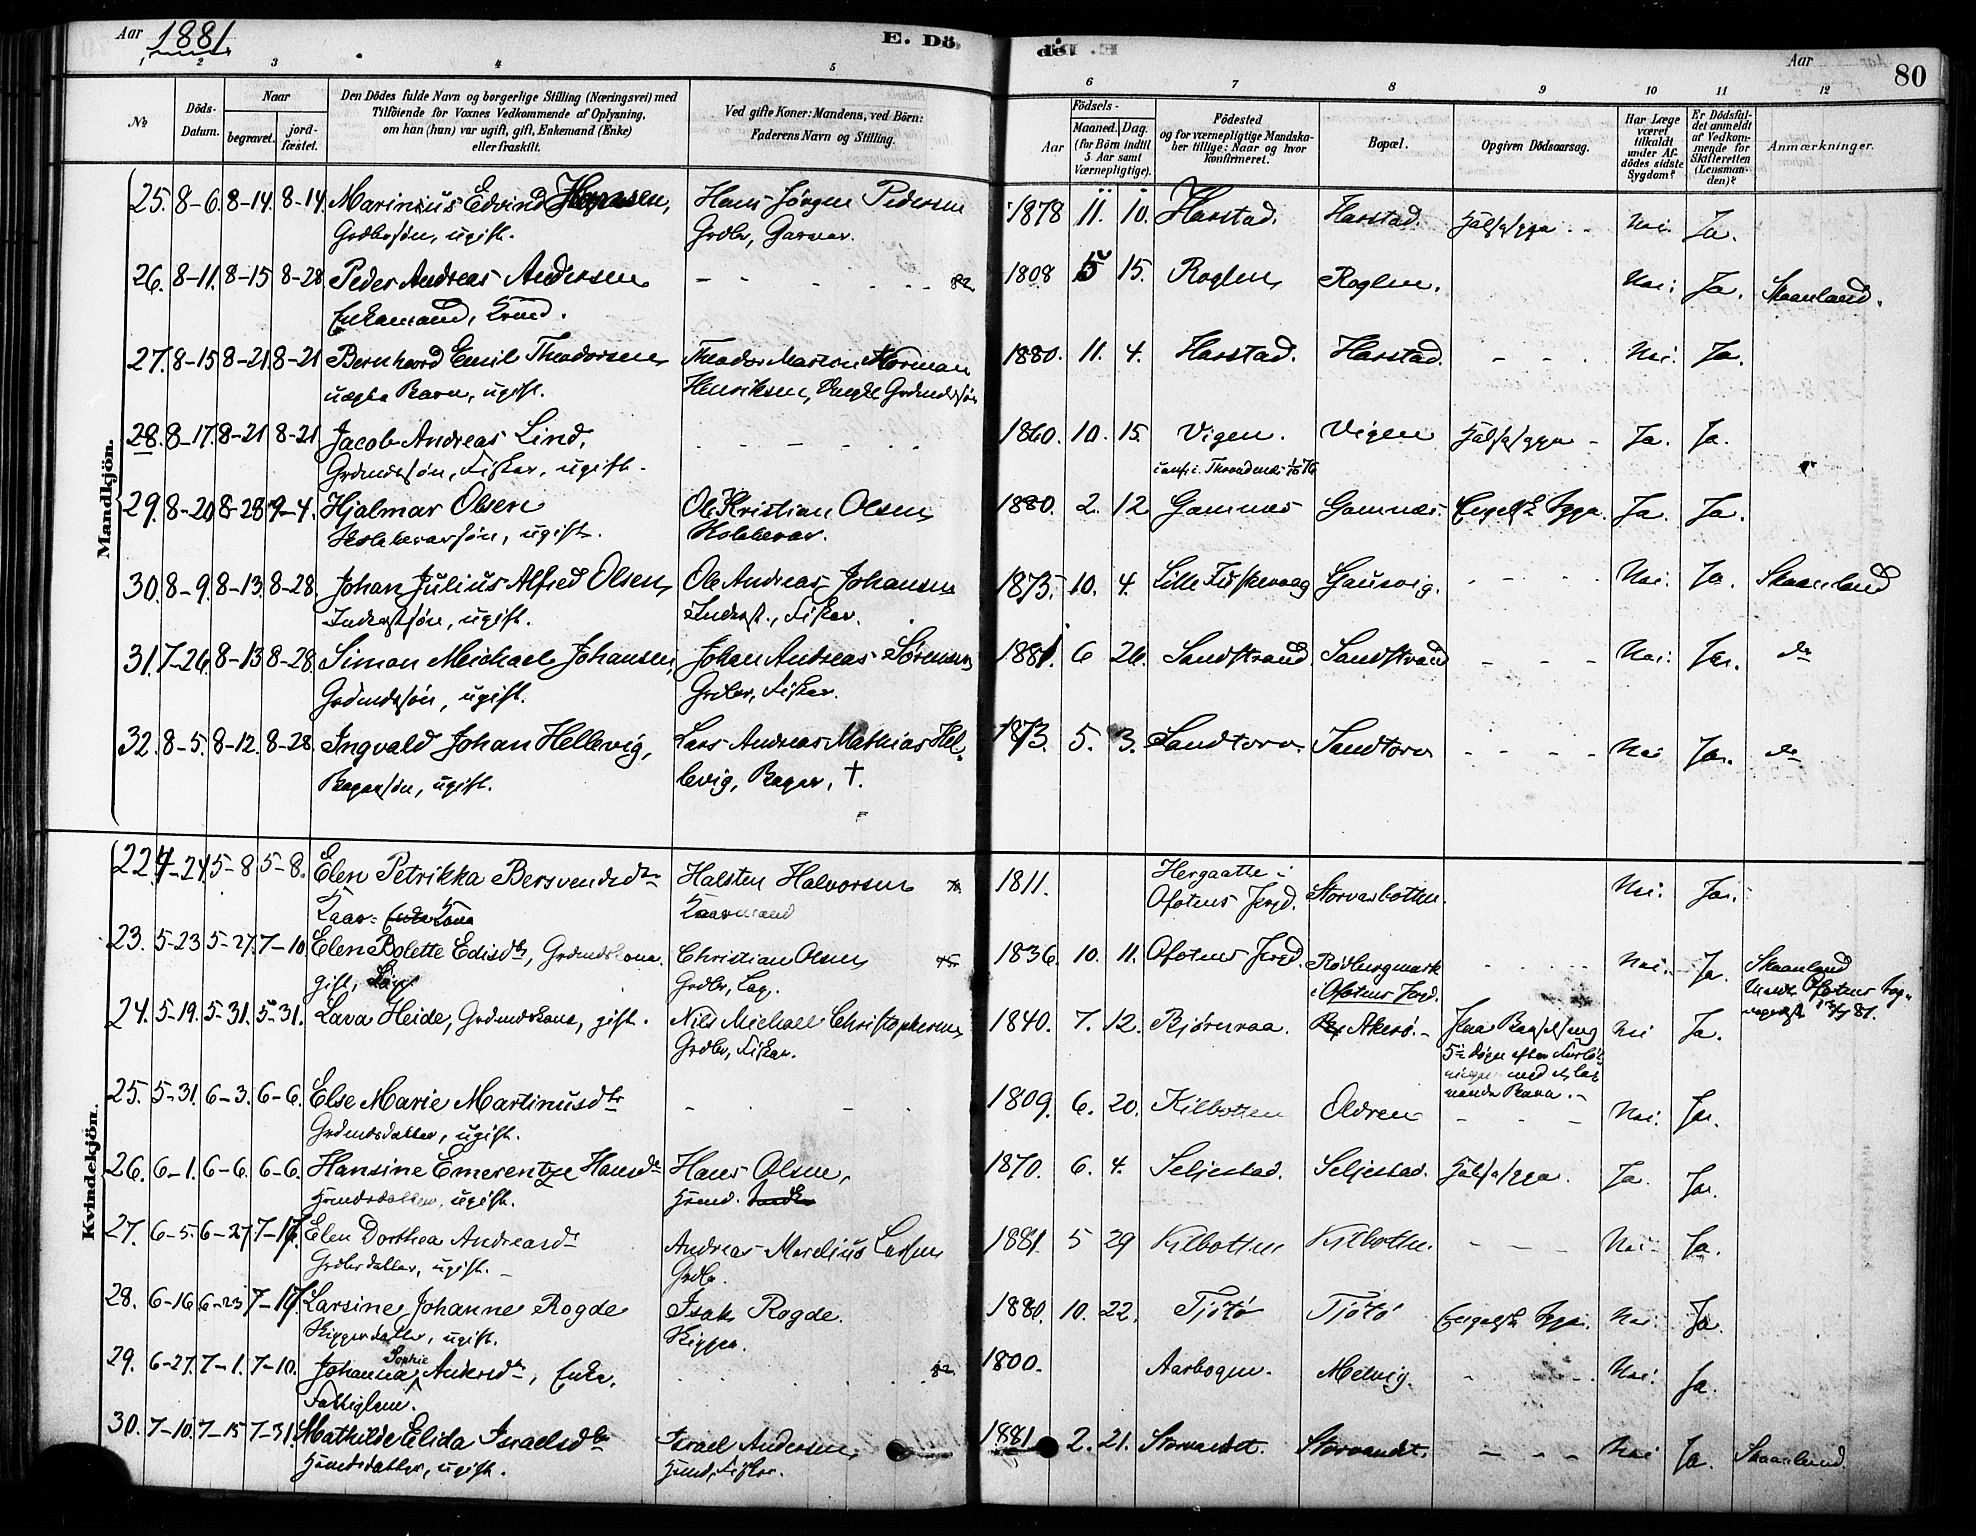 Aar 1881
E. Dö
E. Dö
Aar
80
1 2 3 4 5
6 7 8 9 10 11 12
№
Döds-Datum.
Naar
begravet.
jord-fæstet.
Den Dödes fulde Navn og borgerlige Stilling (Næringsvei) med
Tilföiende for Voxnes Vedkommende af Oplysning,
om han (hun) var ugift, gift, Enkemand (Enke)
eller fraskilt.
Ved gifte Koner: Mandens, ved Börn:
Faderens Navn og Stilling.
Födsels-
Aar
Maaned. Dag.
(for Börn indtil
5 Aar samt
Værnepligtige).
Födested
og for værnepligtige Mandska-
ber tillige: Naar og hvor
konfirmeret.
Bopæl.
Opgiven Dödsaarsag.
Har Læge
været
tilkaldt
under Af-
dödes sidste
Sygdom?
Er Dödsfal-
det anmeldt
af Vedkom-
mende for
Skifteretten
(Lensman-
den)?
Anmærkninger.
Mandkjön.
25. 8-6. 8-14. 8-14. Marinius Edvind Hansen, Hans Jørgen Pedersen 1878 11. 10. Harstad. Harstad. Nei. Ja.
Grdbrsøn, ugift. Grdbr, Garver.
26. 8-11. 8-15 8-28 Peder Andreas Andersen - - - 82 1808 5 15. Roglen Roglen. Nei. Ja. Skaanland.
Enkemand,
27. 8-15 8-21 8-21 Bernhard Emil Theodorsen Theodor Marton Norman 1880. 11. 4. Harstad. Harstad. - - Nei. Ja.
uægte Barn, ugift. Henriksen, Grdmdssøn
28. 8-17. 8-21 8-21 Jacob Andreas Lind, - - - 1860. 10. 15. Vigen. Vigen Ja. Ja.
Grdmdssøn, Fisker, ugift.
29. 8-20 8-28 9-4. Hjalmar Olsen Ole Kristian Olsen 1880. 2. 12 Gamnæs Gamnæs. Engelsk Syge. Ja. Ja.
ugift.
30. 8-9. 8-13. 8-28. Johan Julius Alfred Olsen, Ole Andreas Johansen 1875. 10. 4. Lille Fiskevaag Gausvig. - - - Nei. Ja. Skaanland
Inderstsøn, ugift. Inderst., Fisker.
31. 7-26. 8-13 8-28. Simon Meichael Johansen, Johan Andreas Sørensen 1881. 6 26. Sandstrand Sandstrand - - - Nei. Ja. do
Grdmdssøn, ugift. Grdbr, Fisker.
32. 8-5. 8-12. 8-28. Ingvald Johan Hellevig, Lars Andreas Mathias Hel- 1873. 5. 3. Sandtorv Sandtorv - - - Nei Ja. do
Bagersøn, ugift. levig, Bager, †.
Kvindekjön.
22. 4-24. 5-8 5-8. Elen Petrikka Bersvendsdtr Halsten Halvorsen 1811. Hergaatte i Storvasbotten. Nei. Ja.
Kaar- Kone Kaarmand Ofotens Prgd.
23. 5-23 5-27. 7-10. Elen Bolette Edisdtr, Grdmdskone. Christian Olsen 1836. 10. 11. Ofotens Prgd. Rødbergmark - - - Nei. Ja. Skaanland
gift, Lap. Grdbr, Lap. i Ofotens Prgd. Ofotens
24. 5-19. 5-31. 5-31. Lava Heide, Grdmdskone, gift. Nils Michael Christophersen 1840. 7. 12. Bjørnraa Akerø. Nei Ja.
Grdbr, Fisker.
25. 5-31. 6-3. 6-6. Else Marie Martinusdtr - - - 1809. 6. 20. Kilbotten Oldren - - - Nei. Ja.
Grdmdsdatter, ugift.
26. 6-1. 6-6. 6-6. Hansine Emerentze Hansdtr Hans Olsen, 1870. 6. 4. Seljestad. Seljestad. Ja. Ja.
Hmdsdatter, ugift. Hmd.
27. 6-5. 6-27 7-17. Elen Dorthea Andreasdtr Andreas Mordius Larsen 1881. 5 29 Kilbotten Kilbotten. - - - Nei. Ja.
Grdbrdatter, ugift. Grdbr.
28. 6-16 6-23 7-17. Larsine Johanne Rogde Isak Rogde. 1880. 10. 22. Tjøtø Tjøtø Engelsk Syge. Nei. Ja.
Skipperdatter, ugift. Skipper.
29. 6-27. 7-1. 7-10. Johanna Sophie Andersdtr, Enke. 82 1800. Aarbogen. Melvig. - - Nei. Ja.
Fattiglem.
30. 7-10. 7-15 7-31. Mathilde Elida Israelsdtr Israel Andersen 1881. 2. 21. Storvandet. Storvandet. - - - Nei Ja. Skaanland.
Hmdsdatter, ugift. Hmd, Fisker.